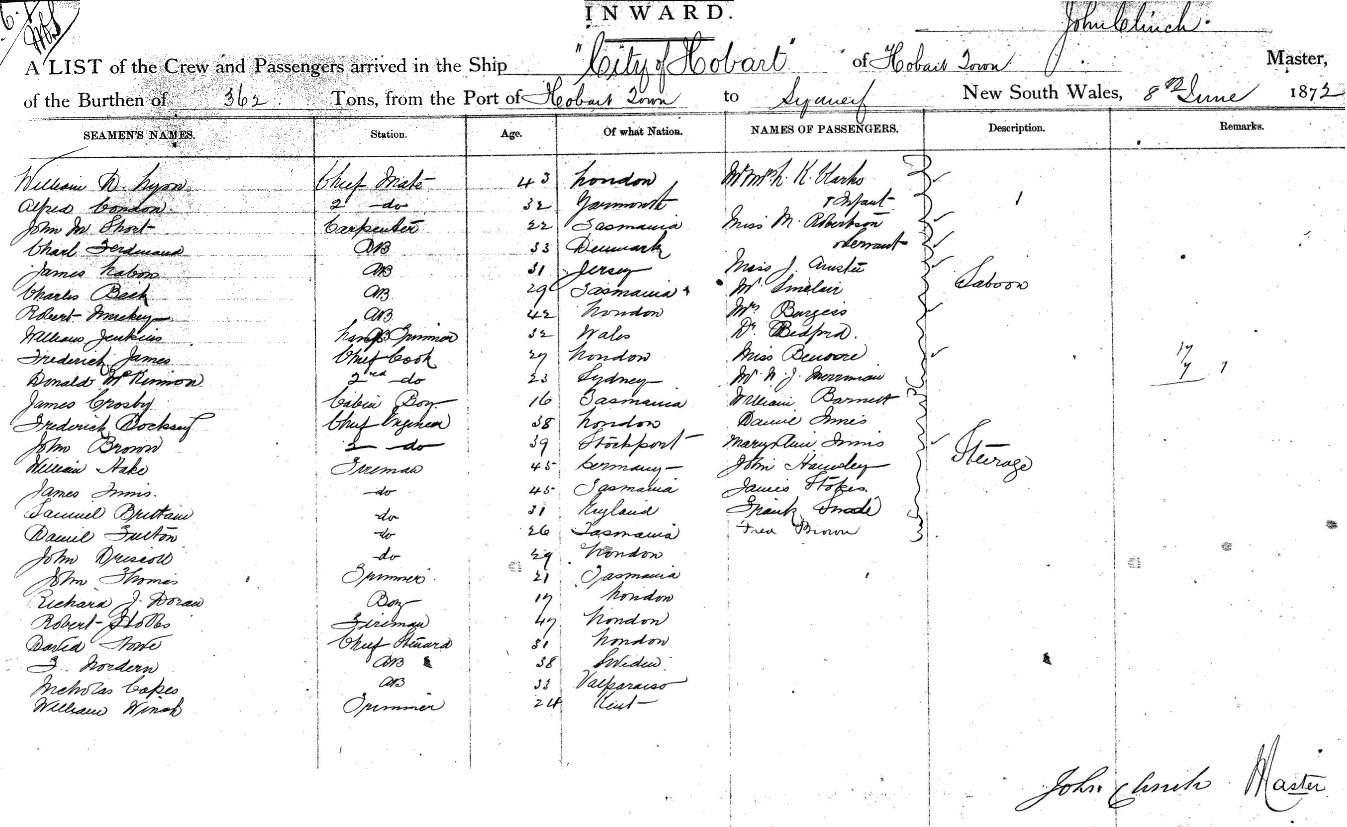 INWARD.
John Clinch
A LIST of the Crew and Passengers arrived in the Ship "City of Hobart" of Hobart Town Master,
of the Burthen of 362 Tons, from the Port of Hobart Town to Sydney New South Wales, 8th June 1872
SEAMEN'S NAMES. Station. Age. Of what Nation. NAMES OF PASSENGERS. Description. Remarks.
William Chief Mate 43 London Mr Mrs K. Clarke
Alfred Condon 2 do 32 Yarmouth & Infant 1
John M Short Carpenter 22 Tasmania Miss M. Robertson
Charl Ferdinand AB 33 Denmark & Servant
James AB 31 Jersey Miss J.
Charles Bash AB 29 Tasmania Mr Sinclair Saloon
Robert AB 42 London Mrs Burgess
William Jenkins Trimmer 32 Wales Dr Bedford.
Frederick James Chief Cook 27 London Miss 17
Donald McKinnon 2nd do 23 Sydney Mr N. J. Merriman 7 1
James Crosby Cabin Boy 16 Tasmania William Barnett
Frederick Chief Engineer 38 London Daniel Innis
John Brown 2 do 39 Stockport Mary Ann Innis Steerage
William Hake Fireman 45 Germany John
James Innis. do 45 Tasmania James Stokes
Samuel Brittain do 31 England Frank
Daniel Fulton do 26 Tasmania Fred Brown
John Driscoll do 29 London
John Thomas Trimmer 21 Tasmania
Richard J. Doran Boy 17 London
Robert Fireman 47 London
David Chief Steward 31 London
Nordern AB 38 Sweden
Nicholas Capes AB 33 Valparaiso
William Winch Trimmer 24 Kent
John Clinch Master